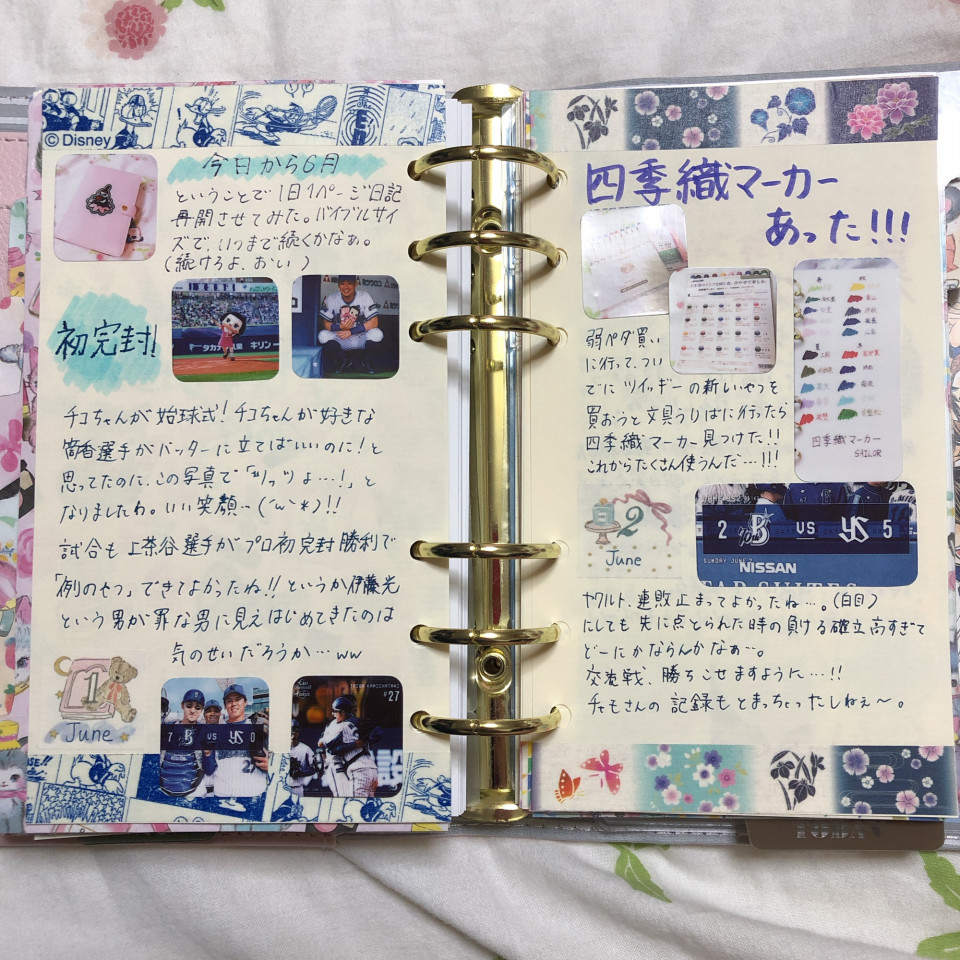 ©Disney
今日から6月
ということで1日1ページ日記
再開させてみた。バイブルサイ
ズで、いつまで続くかなぁ。
(続けろよ、おい)
初完封!
キリン
チコちゃんが始球式!チコちゃんが好きな
筒香選手がバッターに立てばいいのに!と
思ってたのに、この写真で「ツッッョ…!」と
なりましたわ。いい笑顔…(´ω`*)!!
試合も上茶谷選手がプロ初完封勝利で
「例のやつ」できてよかったね!!というか伊藤光
という男が罪な男に見えはじめてきたのは
気のせいだろうか…ww
1
June
7 B VS YS 0
27
四季織マーカー
あった!!!
弱ペダ買い
に行って、つい
でにツイッギーの新しいやつを
買おうと文具うりばに行ったら
四季織マーカー見つけた!!
これからたくさん使うんだ…!!!
四季織マーカー
SAILOR
2
June
2 B VS YS 5
SUNDAY JUNE 2
NISSAN
STAR SUITES
ヤクルト、連敗止まってよかったね…。(白目)
にしても先に点とられた時の負ける確立高すぎて
どーにかならんかなぁ…。
交流戦、勝ちこせますように…!!
チャモさんの記録もとまっちゃったしねぇ〜。